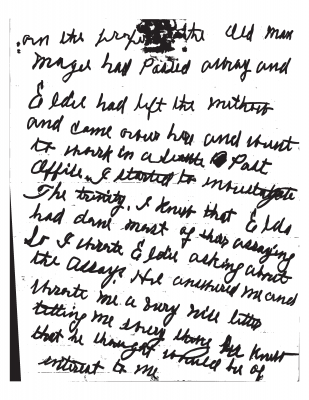 on the the Old man
Magee had Passed away and
Eldie had left the
and came over here and went
to work in a Post
Office. I started to investigate
The trinity. I knew that Eldo
had done most of assaying
So I wrote Eldie asking about
the assays. He answered me and
wrote me a very nice letter
telling me every thing he knew
that he thought would be of
interest to me